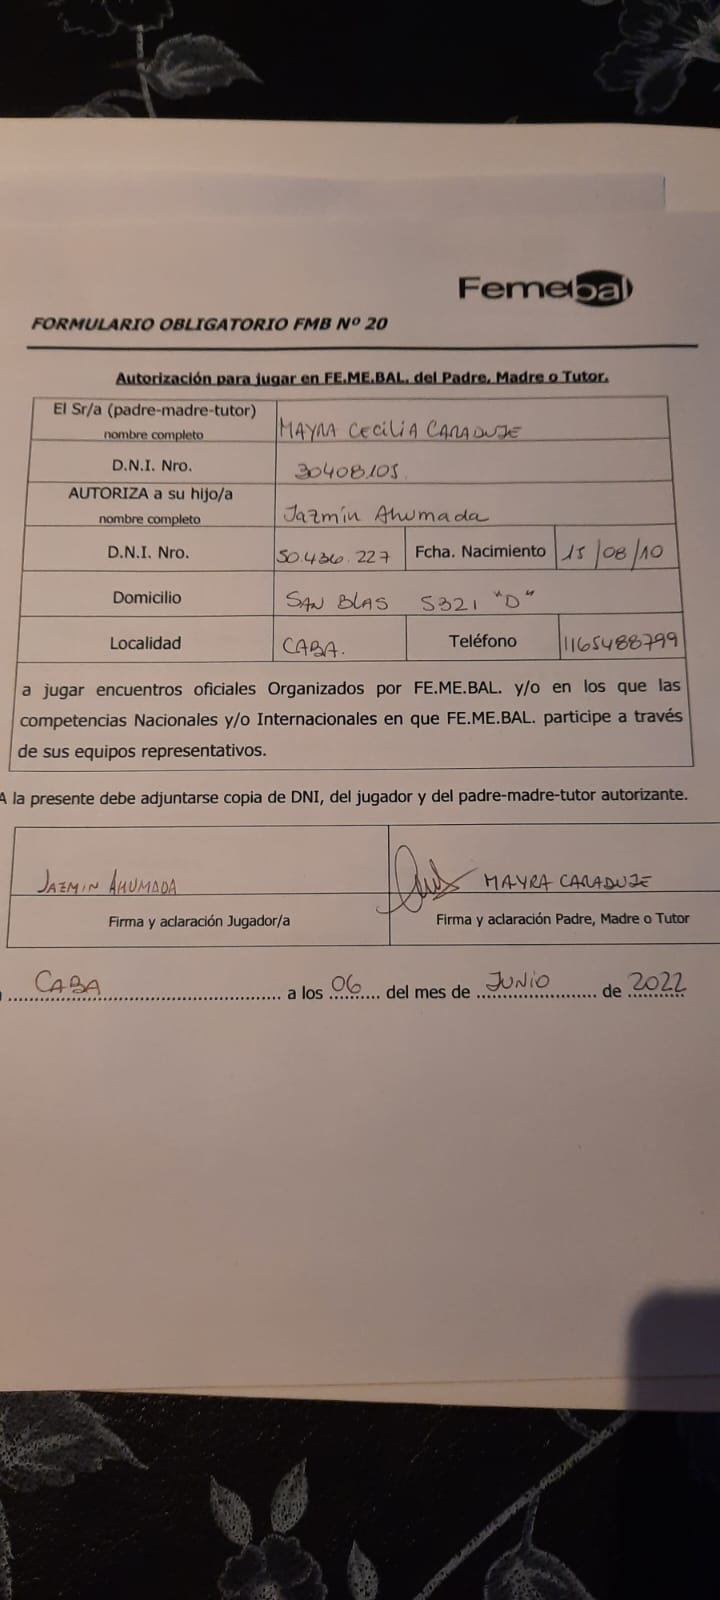 Femebal
FORMULARIO OBLIGATORIO FMB Nº 20
Autorización para jugar en FE.ME.BAL. del Padre, Madre o Tutor.
El Sr/a (padre-madre-tutor)
nombre completo
MAYRA CECILIA CARADUJE
D.N.I. Nro.
30408.105.
AUTORIZA a su hijo/a
nombre completo
Jazmín Ahumada
D.N.I. Nro.
50.436.227
Fcha. Nacimiento
15/08/10
Domicilio
SAN BLAS 5321 "D"
Localidad
CABA.
Teléfono
1165488799
a jugar encuentros oficiales Organizados por FE.ME.BAL. y/o en los que las
competencias Nacionales y/o Internacionales en que FE.ME.BAL. participe a través
de sus equipos representativos.
A la presente debe adjuntarse copia de DNI, del jugador y del padre-madre-tutor autorizante.
JAZMIN AHUMADA
MAYRA CARADUJE
Firma y aclaración Jugador/a
Firma y aclaración Padre, Madre o Tutor
CABA a los 06 del mes de JUNIO de 2022